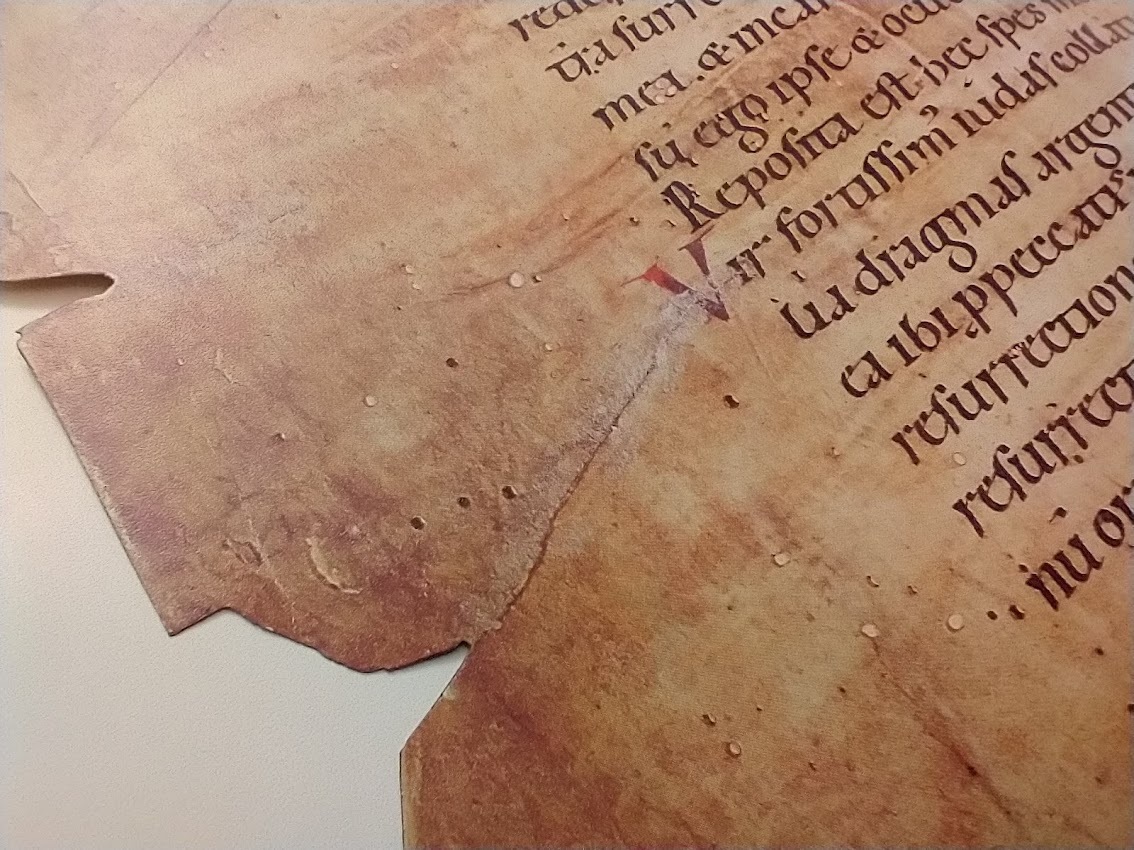 rede
tra surre
mea. & incar
su, ego ipse & ocul
Reposita est hec spes m
Vir fortissim' iudas collat
lia dragmas argen
ea ibi, p peccatis
resurrection
resurrect
nu or